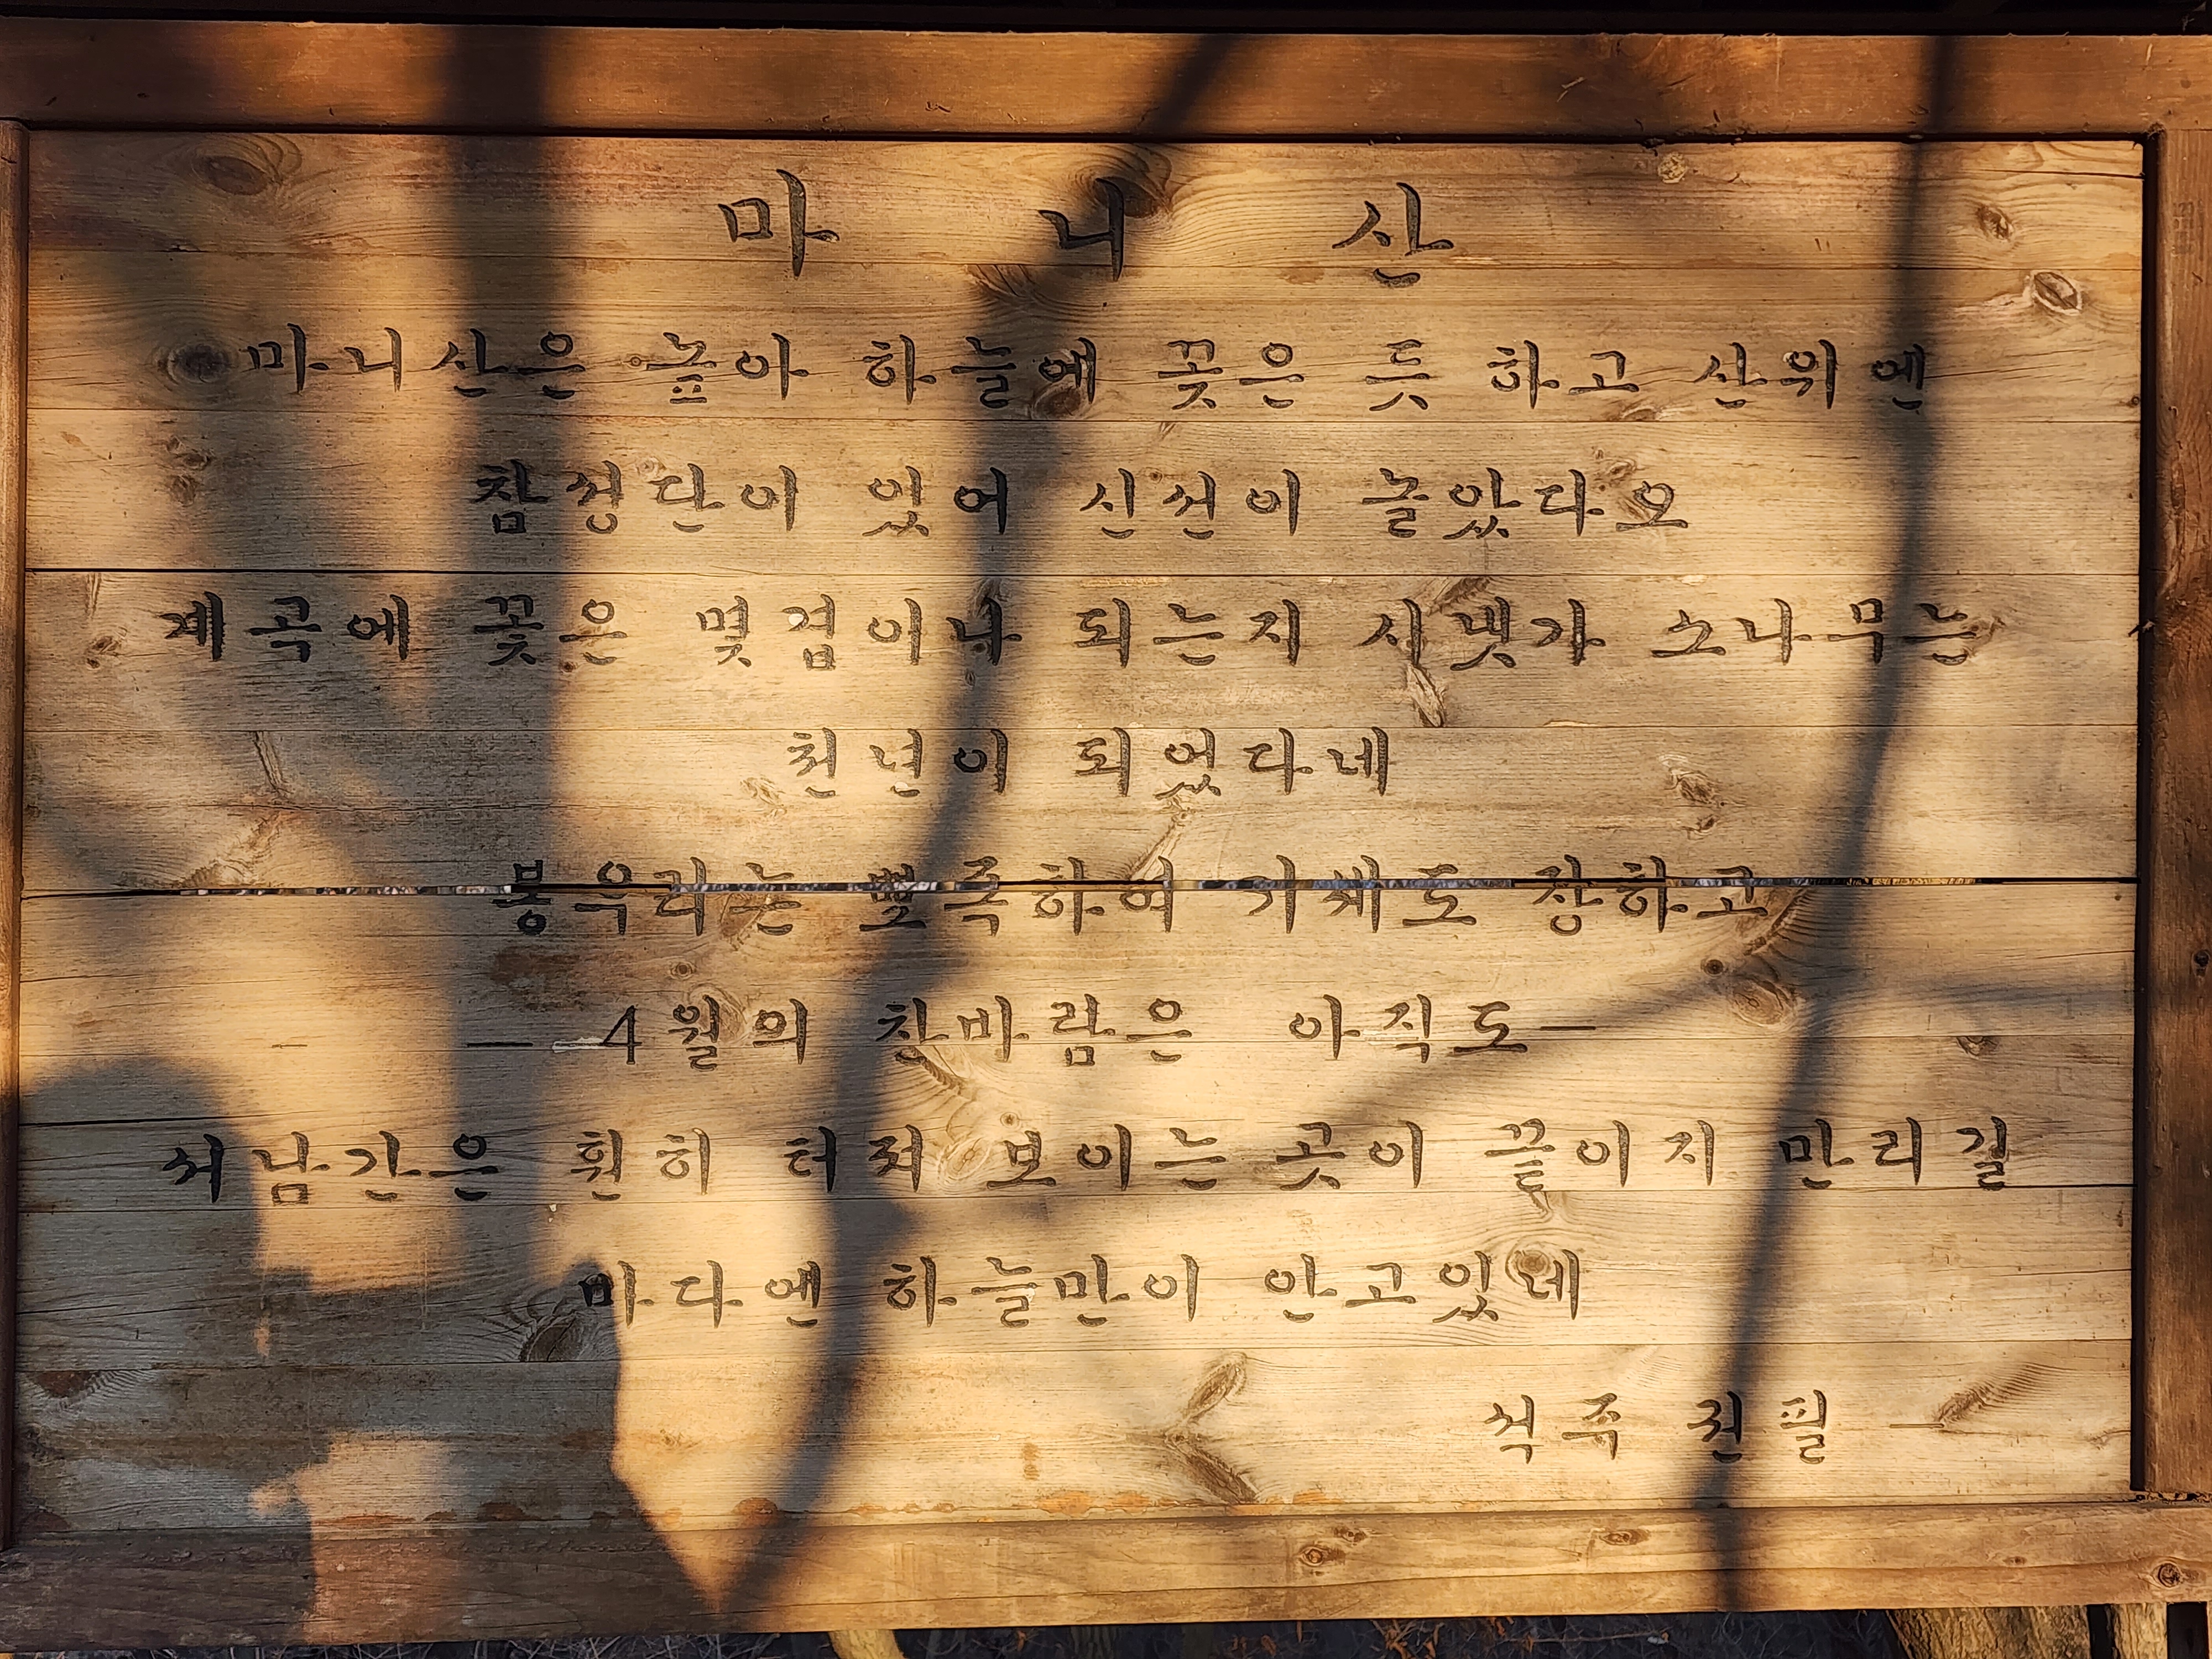 마니산
마니산은 높아 하늘에 꽂은 듯 하고 산위엔
참성단이 있어 신선이 놀았다오
계곡에 꽃은 몇겹이나 되는지 시냇가 소나무는
천년이 되었다네
봉우리는 뾰족하여 기세도 장하고
— 4월의 찬바람은 아직도—
서남간은 훤히 터져 보이는 곳이 끝이지 만리길
바다엔 하늘만이 안고있네
석주 권필 —